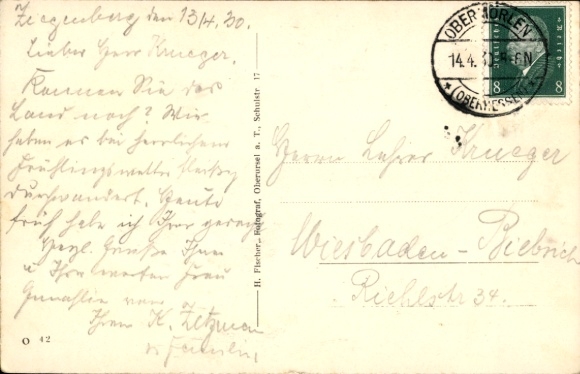 Ziegenberg den 13/4. 30.
Lieber Herr Krueger.
Kennen Sie das
Land noch? Wir
haben es bei herrlichem
Frühlingswetter
durchwandert. Heute
früh habe ich Ihrer
Herzl. Grüße Ihnen
u Ihrer werten Frau
Gemahlin von
Ihrem K.
u Familie.
O 42
H. Fischer, Fotograf, Oberursel a. T., Schulstr 17
OBER MÖRLEN
14.4.30 N
(OBERHESSEN)
Deutsches Reich
8 8
Herrn Lehrer Krueger
Wiesbaden-Biebrich
Riehlstr 34.